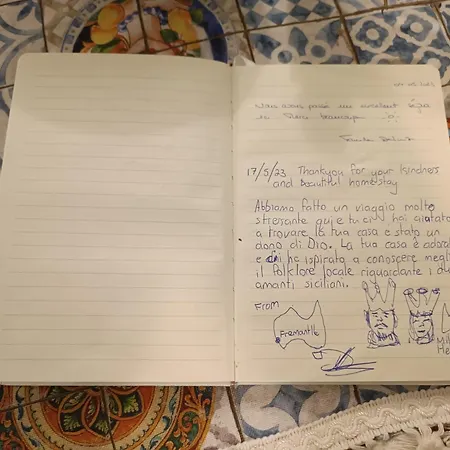 Nous avons passé un excellent séjour
et
17/5/23 Thankyou for your kindness
and Beautiful homestay
Abbiamo fatto un viaggio molto
stressante qui e tu ci hai aiutato
a trovare la tua casa e stato un
dono di Dio. La tua casa è adorab
e ci ha ispirato a conoscere megli
il folklore locale riguardante i du
amanti siciliani.
From
Fremantle